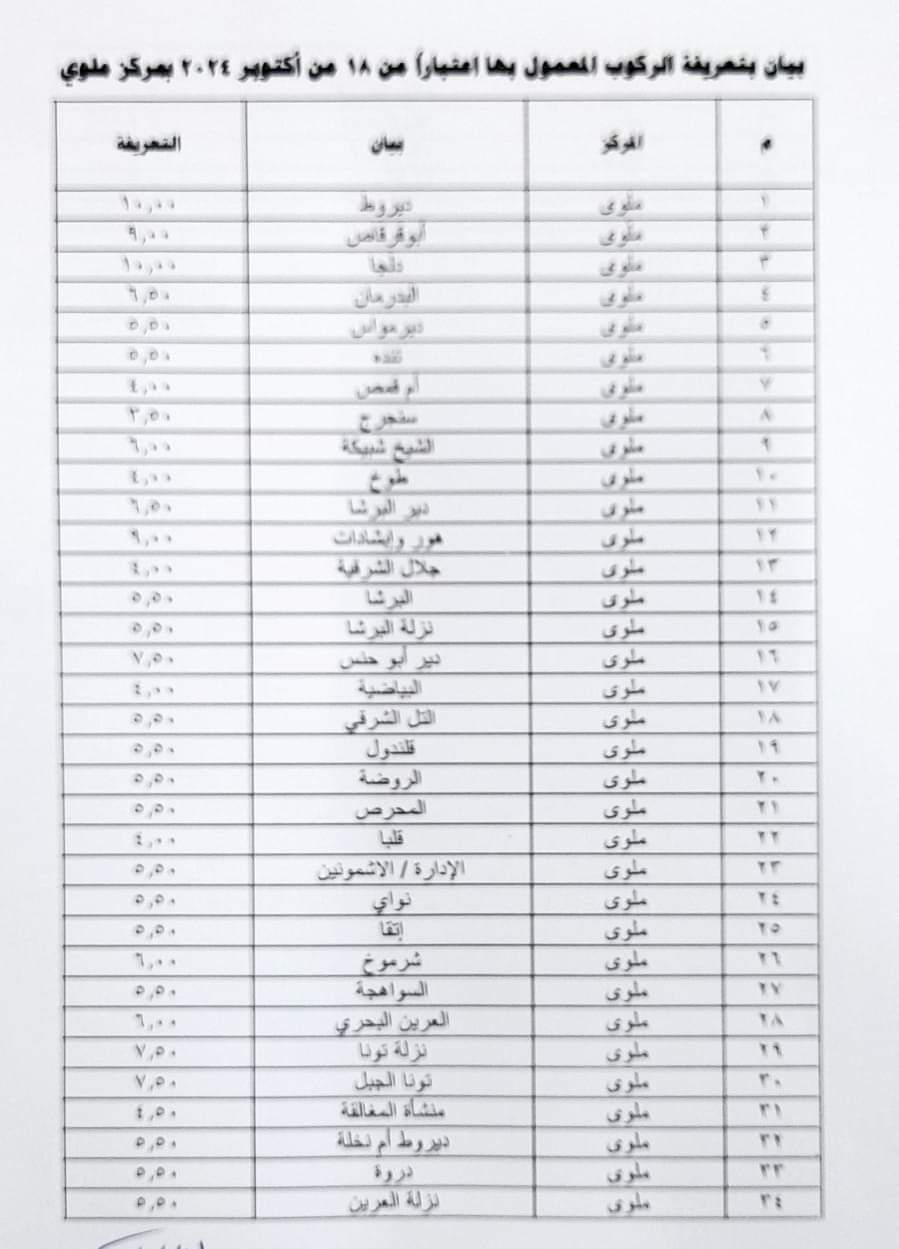 بيان بتعريفة الركوب المعمول بها اعتباراً من ١٨ من أكتوبر ٢٠٢٤ بمركز ملوي
م المركز بيان التعريفة
١ ملوى ديروط ١٠,٠٠
٢ ملوى أبوقرقاص ٩,٠٠
٣ ملوى دلجا ١٠,٠٠
٤ ملوى البدرمان ٦,٥٠
٥ ملوى ديرمواس ٥,٥٠
٦ ملوى تنده ٥,٥٠
٧ ملوى أم قمص ٤,٠٠
٨ ملوى سنجرج ٣,٥٠
٩ ملوى الشيخ شبيكة ٦,٠٠
١٠ ملوى طوخ ٤,٠٠
١١ ملوى دير البرشا ٦,٥٠
١٢ ملوى هور وإيشادات ٩,٠٠
١٣ ملوى جلال الشرقية ٤,٠٠
١٤ ملوى البرشا ٥,٥٠
١٥ ملوى نزلة البرشا ٥,٥٠
١٦ ملوى دير أبو حنس ٧,٥٠
١٧ ملوى البياضية ٤,٠٠
١٨ ملوى التل الشرقي ٥,٥٠
١٩ ملوى قلندول ٥,٥٠
٢٠ ملوى الروضة ٥,٥٠
٢١ ملوى المحرص ٥,٥٠
٢٢ ملوى قلبا ٤,٠٠
٢٣ ملوى الإدارة / الاشمونين ٥,٥٠
٢٤ ملوى نواي ٥,٥٠
٢٥ ملوى إتقا ٥,٥٠
٢٦ ملوى شرموخ ٦,٠٠
٢٧ ملوى السواهجة ٥,٥٠
٢٨ ملوى العرين البحري ٦,٠٠
٢٩ ملوى نزلة تونا ٧,٥٠
٣٠ ملوى تونا الجبل ٧,٥٠
٣١ ملوى منشأة المغالقة ٤,٥٠
٣٢ ملوى ديروط أم نخلة ٥,٥٠
٣٣ ملوى دروة ٥,٥٠
٣٤ ملوى نزلة العرين ٥,٥٠